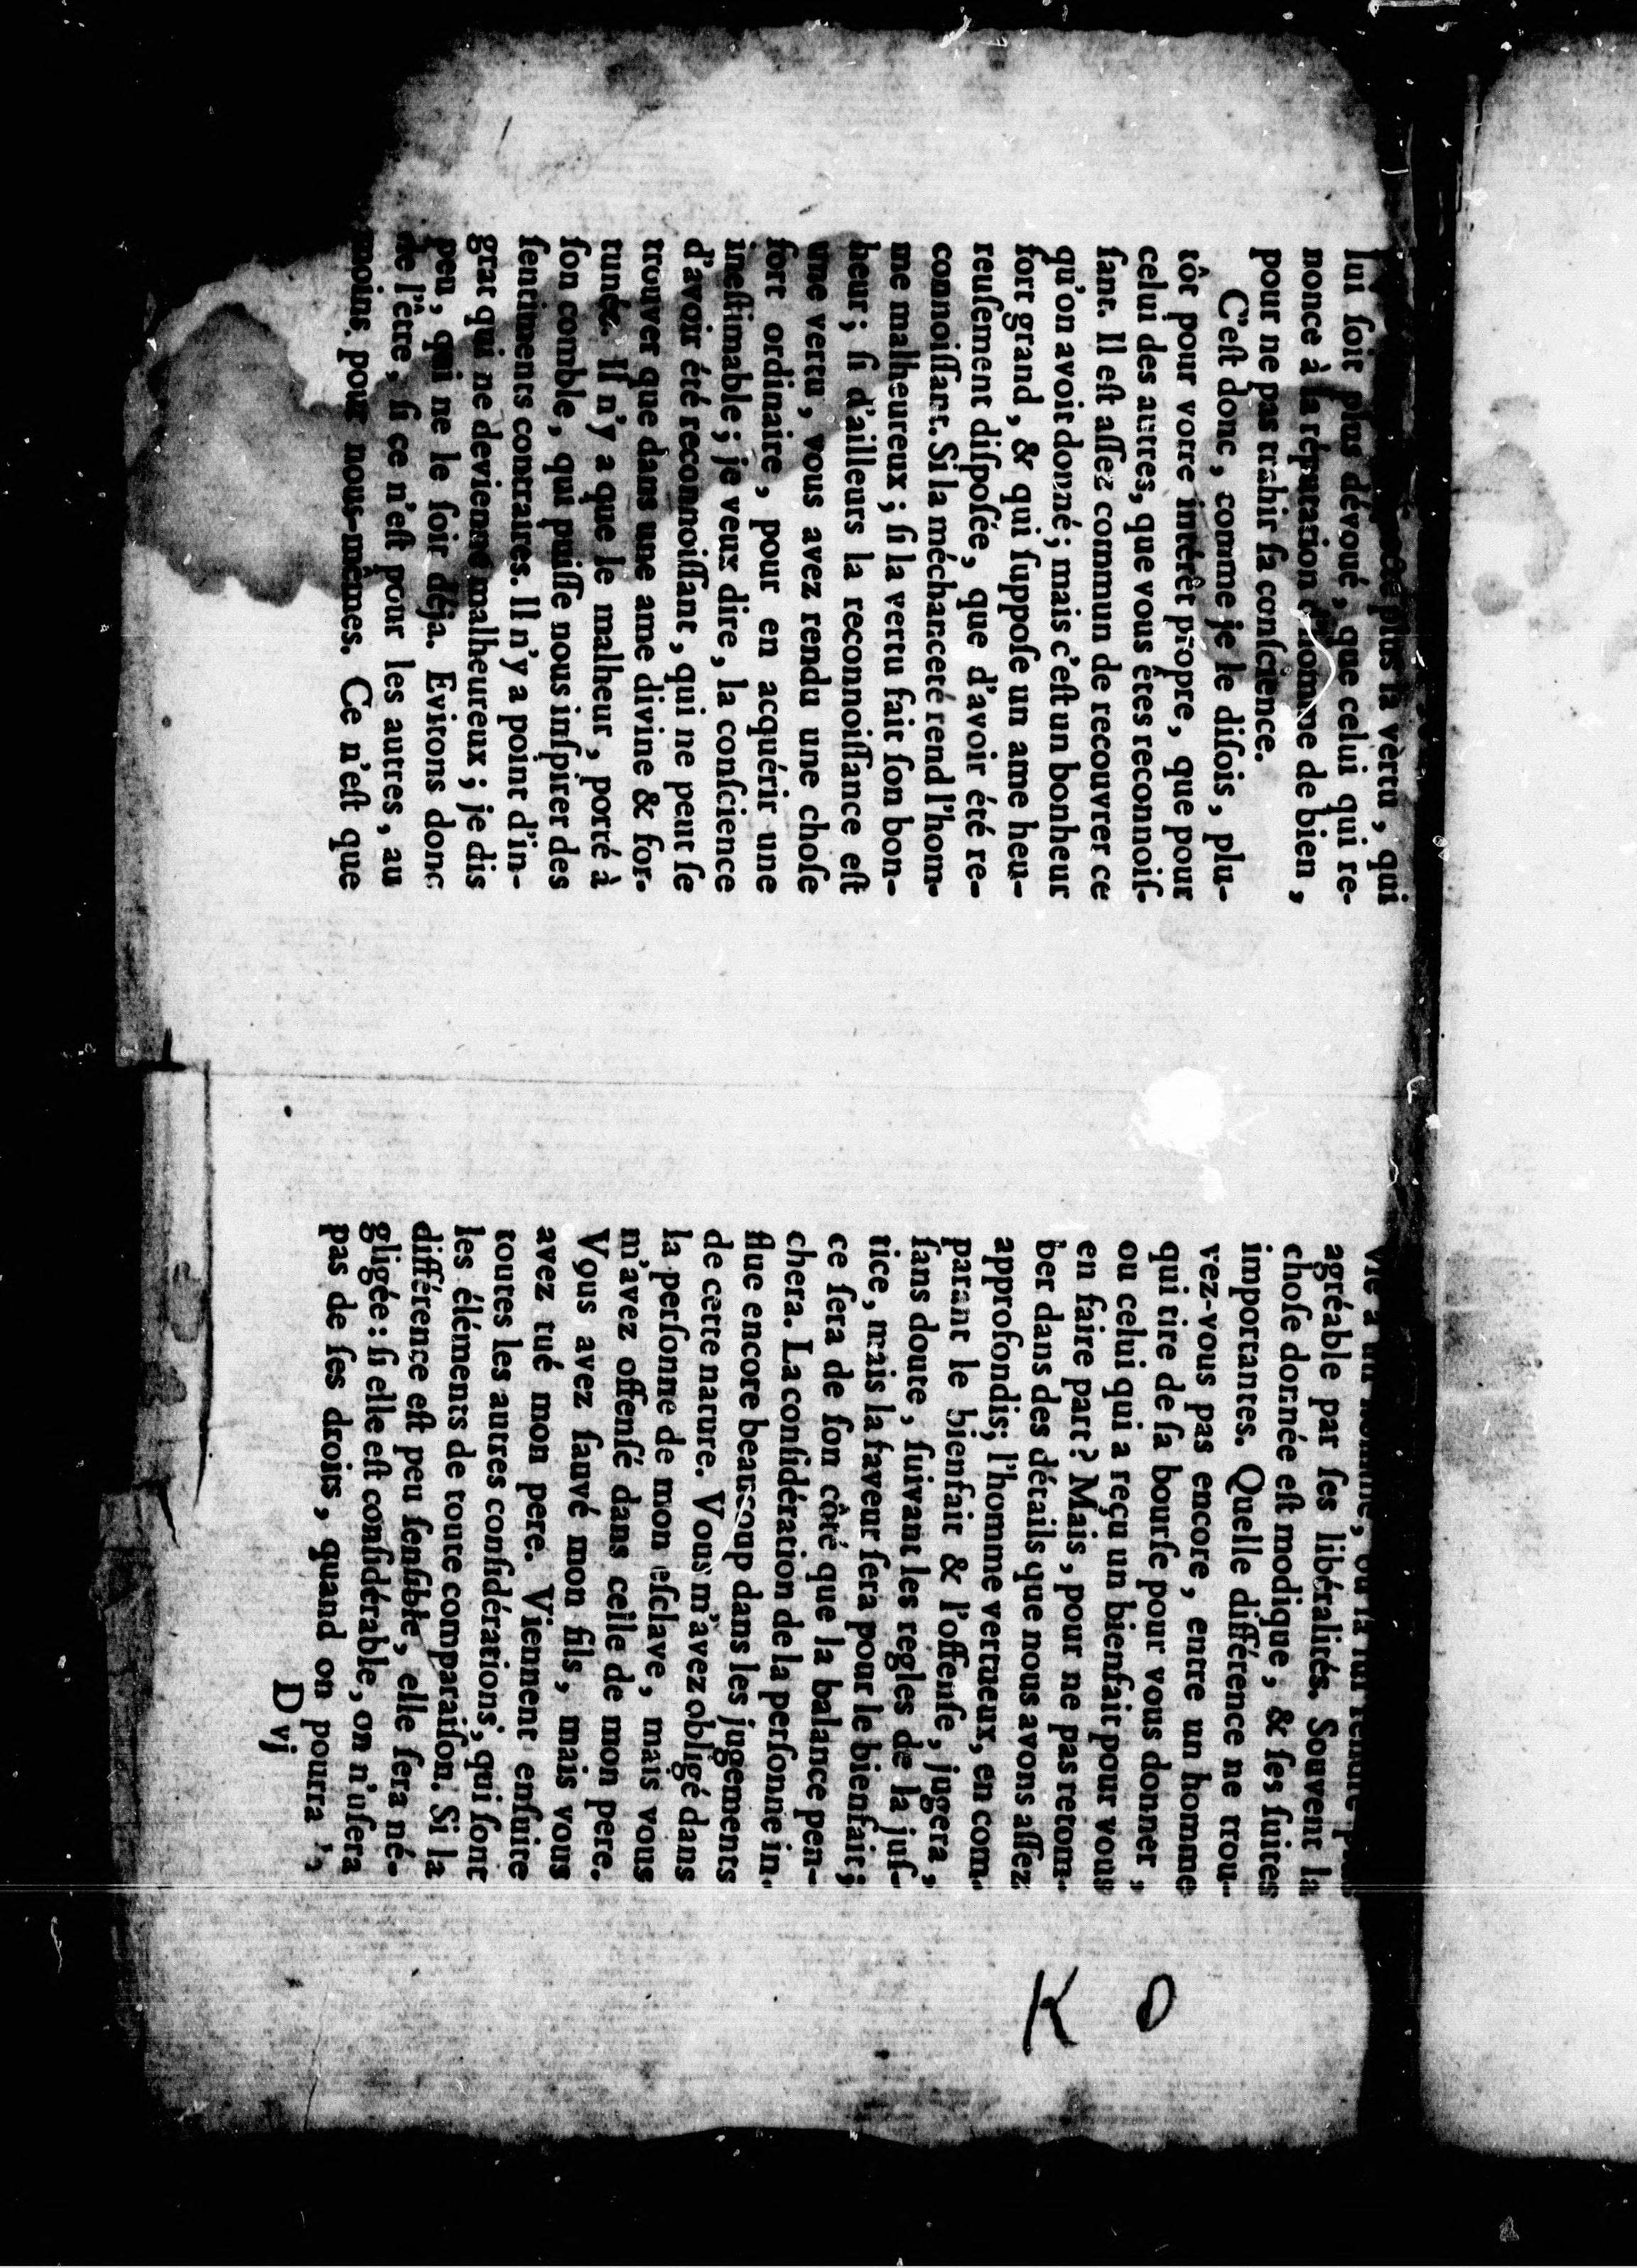 plus la vertu, qui
lui ſoit plus dévoué, que celui qui re-
nonce à la réputation d'homme de bien,
pour ne pas trahir ſa conſcience.
C'eſt donc, comme je le diſois, plu-
tôt pour votre intérêt propre, que pour
celui des autres, que vous êtes reconnoiſ-
ſant. Il eſt aſſez commun de recouvrer ce
qu'on avoit donné; mais c'eſt un bonheur
fort grand, & qui ſuppoſe un ame heu-
reuſement diſpoſée, que d'avoir été re-
connoiſſant. Si la méchanceté rend l'hom-
me malheureux; ſi la vertu fait ſon bon-
heur; ſi d'ailleurs la reconnoiſſance eſt
une vertu, vous avez rendu une choſe
fort ordinaire, pour en acquérir une
ineſtimable; je veux dire, la conſcience
d'avoir été reconnoiſſant, qui ne peut ſe
trouver que dans une ame divine & for-
tunée. Il n'y a que le malheur, porté à
ſon comble, qui puiſſe nous inſpirer des
ſentiments contraires. Il n'y a point d'in-
grat qui ne devienne malheureux; je dis
peu, qui ne le ſoit déja. Evitons donc
de l'être, ſi ce n'eſt pour les autres, au
moins pour nous-mêmes. Ce n'eſt que
vie à un homme, ou la lui rendre
agréable par ſes libéralités. Souvent la
choſe donnée eſt modique, & ſes ſuites
importantes. Quelle différence ne trou-
vez-vous pas encore, entre un homme
qui tire de ſa bourſe pour vous donner,
ou celui qui a reçu un bienfait pour vous
en faire part? Mais, pour ne pas retom-
ber dans des détails que nous avons aſſez
approfondis; l'homme vertueux, en com-
parant le bienfait & l'offenſe, jugera,
ſans doute, ſuivant les regles de la juſ-
tice, mais la faveur ſera pour le bienfait;
ce ſera de ſon côté que la balance pen-
chera. La conſidération de la perſonne in-
flue encore beaucoup dans les jugements
de cette nature. Vous m'avez obligé dans
la perſonne de mon eſclave, mais vous
m'avez offenſé dans celle de mon pere.
Vous avez ſauvé mon fils, mais vous
avez tué mon pere. Viennent enſuite
toutes les autres conſidérations, qui ſont
les éléments de toute comparaiſon. Si la
différence eſt peu ſenſible, elle ſera né-
gligée: ſi elle eſt conſidérable, on n'uſera
pas de ſes droits, quand on pourra,
D vj
O
K